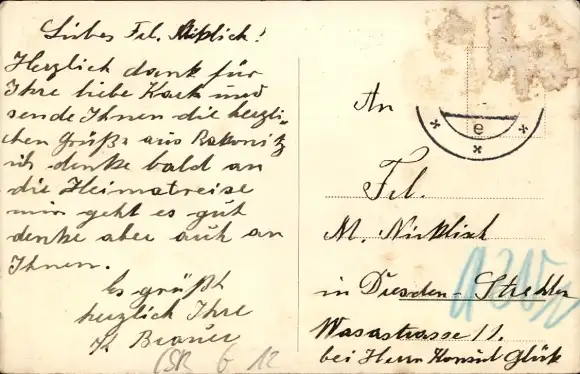 Liebes Frl. Nicklich!
Herzlich dank für
Ihre liebe Karte und
sende Ihnen die herzli-
chen Grüße aus Rakonitz
ich denke bald an
die Heimatreise
mir geht es gut
denke aber auch an
Ihnen.
Es grüßt
herzlich Ihre
Brauer
ČSR 6 12
An
e
Frl.
M. Nicklisch
in Dresden-Strehlen
Wasastrasse 11.
bei Herrn Konsul Glück